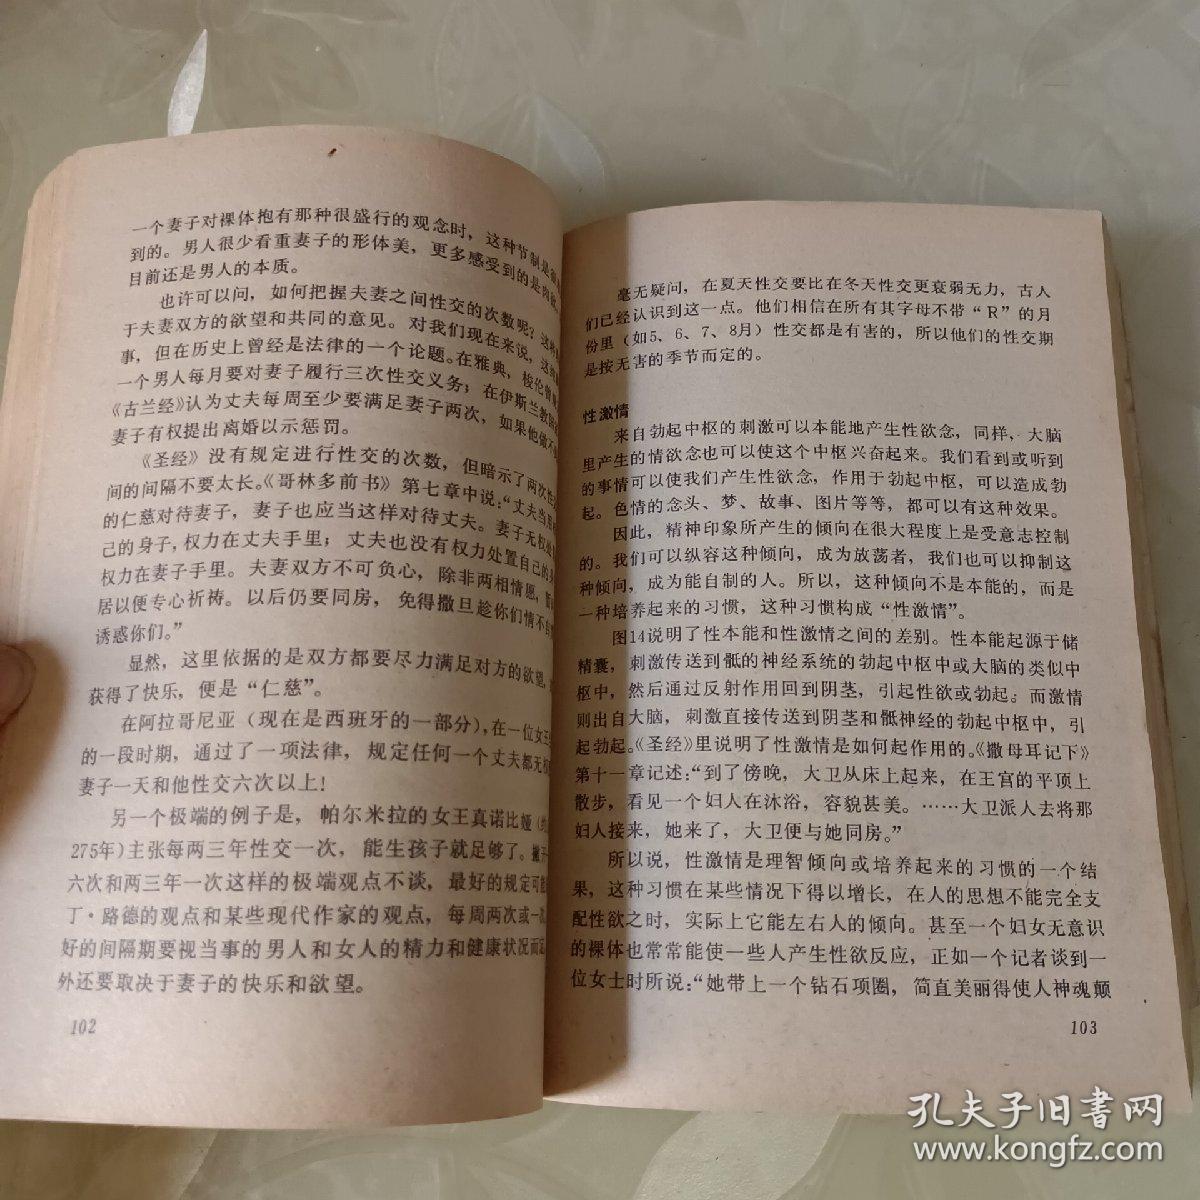 一个妻子对裸体抱有那种很盛行的观念时，这种节制是
到的。男人很少看重妻子的形体美，更多感受到的是肉欲
目前还是男人的本质。
也许可以问，如何把握夫妻之间性交的次数呢？这
于夫妻双方的欲望和共同的意见。对我们现在来说，这
事，但在历史上曾经是法律的一个论题。在雅典，梭伦曾
一个男人每月要对妻子履行三次性交义务；在伊斯兰教
《古兰经》认为丈夫每周至少要满足妻子两次，如果他做不
妻子有权提出离婚以示惩罚。
《圣经》没有规定进行性交的次数，但暗示了两次性
间的间隔不要太长。《哥林多前书》第七章中说：“丈夫当用
的仁慈对待妻子，妻子也应当这样对待丈夫。妻子无权
己的身子，权力在丈夫手里；丈夫也没有权力处置自己的
权力在妻子手里。夫妻双方不可负心，除非两相情愿，
居以便专心祈祷。以后仍要同房，免得撒旦趁你们情不自
诱惑你们。”
显然，这里依据的是双方都要尽力满足对方的欲望，
获得了快乐，便是“仁慈”。
在阿拉哥尼亚（现在是西班牙的一部分），在一位女王
的一段时期，通过了一项法律，规定任何一个丈夫都无权
妻子一天和他性交六次以上！
另一个极端的例子是，帕尔米拉的女王真诺比娅（
275年）主张每两三年性交一次，能生孩子就足够了。撇开
六次和两三年一次这样的极端观点不谈，最好的规定可能
丁·路德的观点和某些现代作家的观点，每周两次或一
好的间隔期要视当事的男人和女人的精力和健康状况而定
外还要取决于妻子的快乐和欲望。
102
毫无疑问，在夏天性交要比在冬天性交更衰弱无力，古人
们已经认识到这一点。他们相信在所有其字母不带“R”的月
份里（如5、6、7、8月）性交都是有害的，所以他们的性交期
是按无害的季节而定的。
性激情
来自勃起中枢的刺激可以本能地产生性欲念，同样，大脑
里产生的情欲念也可以使这个中枢兴奋起来。我们看到或听到
的事情可以使我们产生性欲念，作用于勃起中枢，可以造成勃
起。色情的念头、梦、故事、图片等等，都可以有这种效果。
因此，精神印象所产生的倾向在很大程度上是受意志控制
的。我们可以纵容这种倾向，成为放荡者，我们也可以抑制这
种倾向，成为能自制的人。所以，这种倾向不是本能的，而是
一种培养起来的习惯，这种习惯构成“性激情”。
图14说明了性本能和性激情之间的差别。性本能起源于储
精囊，刺激传送到骶的神经系统的勃起中枢中或大脑的类似中
枢中，然后通过反射作用回到阴茎，引起性欲或勃起。而激情
则出自大脑，刺激直接传送到阴茎和骶神经的勃起中枢中，引
起勃起。《圣经》里说明了性激情是如何起作用的。《撒母耳记下》
第十一章记述：“到了傍晚，大卫从床上起来，在王宫的平顶上
散步，看见一个妇人在沐浴，容貌甚美。……大卫派人去将那
妇人接来，她来了，大卫便与她同房。”
所以说，性激情是理智倾向或培养起来的习惯的一个结
果，这种习惯在某些情况下得以增长，在人的思想不能完全支
配性欲之时，实际上它能左右人的倾向。甚至一个妇女无意识
的裸体也常常能使一些人产生性欲反应，正如一个记者谈到一
位女士时所说：“她带上一个钻石项圈，简直美丽得使人神魂颠
103
孔夫子旧书网
www.kongfz.com